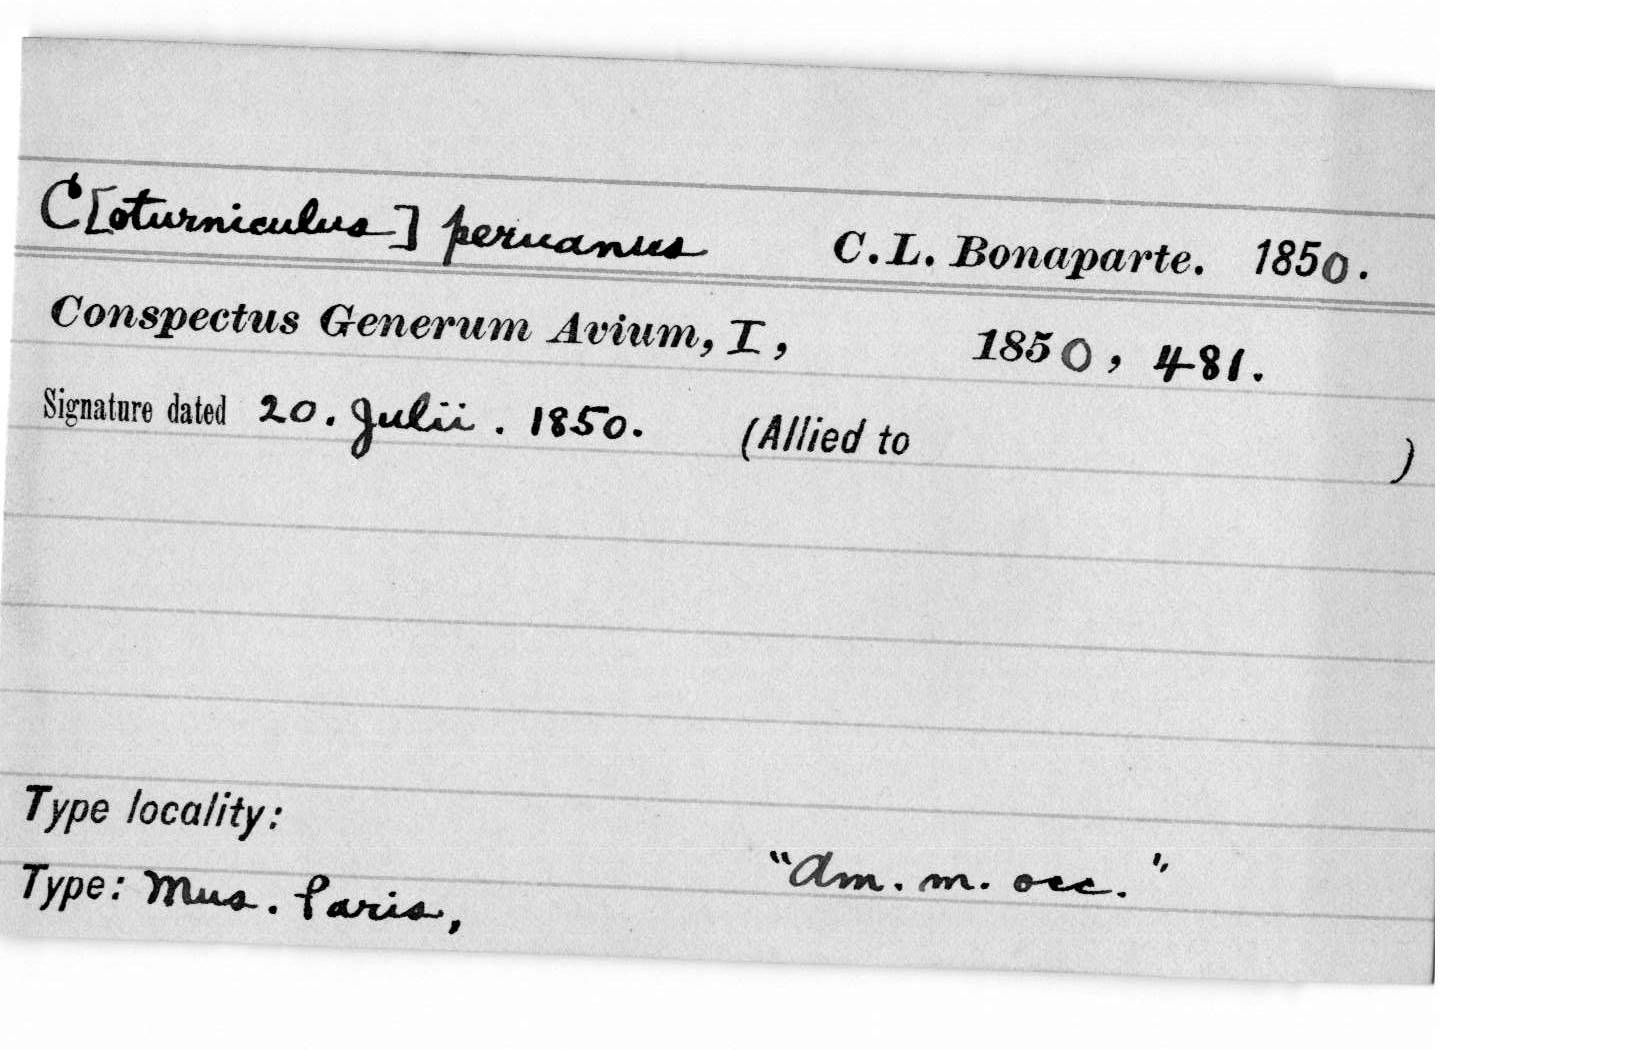 C[oturniculus] peruanus C.L. Bonaparte. 1850.
Conspectus Generum Avium, I, 1850, 481.
Signature dated 20. Julii. 1850. (Allied to )
Type locality:
"Am. m. occ."
Type: Mus. Paris,